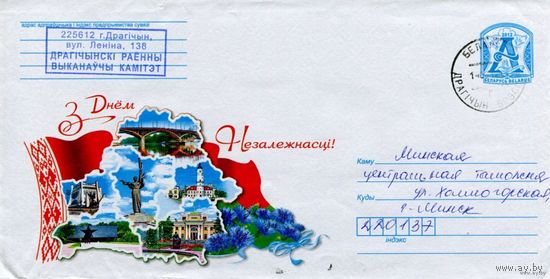 адрас адпраўшчыка і індэкс прадпрыемства сувязі
225612 г.Драгічын,
вул. Леніна, 138
ДРАГІЧЫНСКІ РАЁННЫ
ВЫКАНАЎЧЫ КАМІТЭТ
2012
А
БЕЛАРУСЬ BELARUS
БЕЛА
ДРАГІЧЫН
З Днём
Незалежнасці!
Каму Минская
центральная таможня
Куды ул. Хоммогорская,
г. Минск
220137
індэкс
www.ay.by